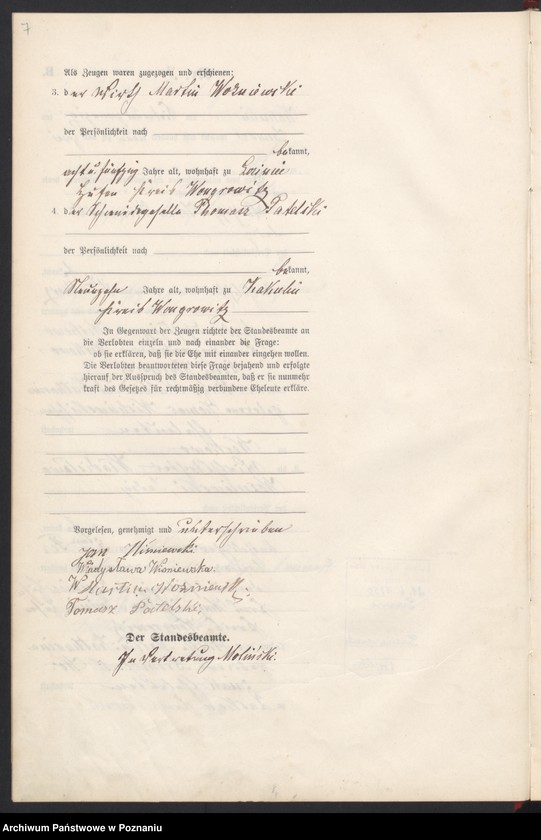 7
Als Zeugen waren zugezogen und erschienen:
3. der Wirth Martin Wozniewski
der Persönlichkeit nach
bekannt,
acht u fünfzig Jahre alt, wohnhaft zu
Kreis Wongrowitz
4. der Schmiedegeselle Thomas
der Persönlichkeit nach
bekannt,
Neunzehn Jahre alt, wohnhaft zu Zakulin
Kreis Wongrowitz
In Gegenwart der Zeugen richtete der Standesbeamte an
die Verlobten einzeln und nach einander die Frage:
ob sie erklären, daß sie die Ehe mit einander eingehen wollen.
Die Verlobten beantworteten diese Frage bejahend und erfolgte
hierauf der Ausspruch des Standesbeamten, daß er sie nunmehr
kraft des Gesetzes für rechtmäßig verbundene Eheleute erkläre.
Vorgelesen, genehmigt und unterschrieben
Jan Wisniewski
Władysława Wiśniewska
W Martin Wozniewski
Tomasz
Der Standesbeamte.
In Vertretung Moliński.
Archiwum Państwowe w Poznaniu